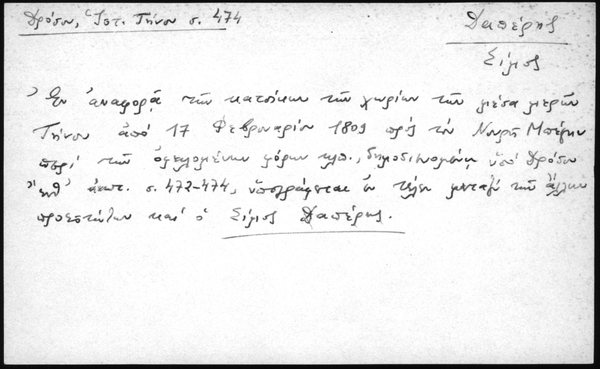 Δρόσου, Ἱστ. Τήνου σ. 474
Δαπέρης
Σίμος
Ἐν ἀναφορᾷ τῶν κατοίκων τῶν χωρίων τῶν μέσα μερῶν
Τήνου ἀπό 17 Φεβρουαρίου 1809 πρός τὸν Νουρῆ Μπέην
περί τῶν ὀφειλομένων φόρων κλπ., δημοσιευομένῃ ὑπό Δρόσου
ἔνθ' ἀνωτ. σ. 472-474, ὑπογράφεται ἐν τέλει μεταξύ τῶν ἄλλων
προεστώτων καί ὁ Σίμος Δαπέρης.